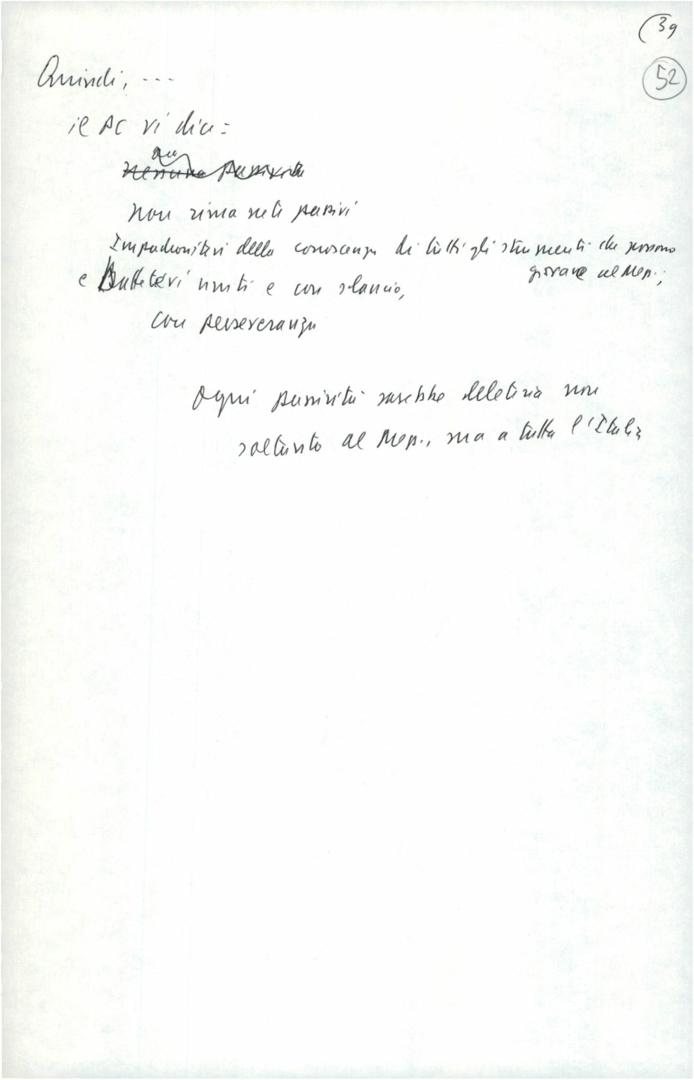 (39
52
Quindi, ---
il PC vi dice:
nessuna passività
non rimanete passivi
Impadronitevi della conoscenza di tutti gli strumenti che possono
giovare al Mep.;
e Battetevi uniti e con slancio,
con perseveranza
Ogni passività sarebbe deleteria non
soltanto al Mep., ma a tutta l'Italia